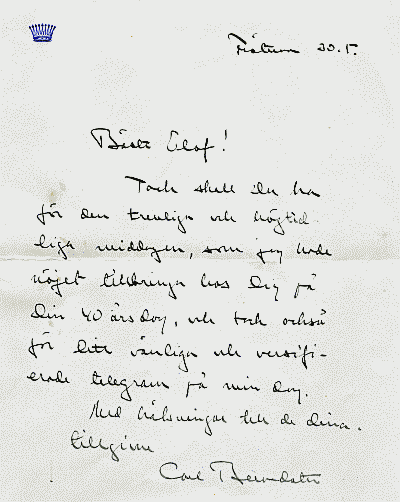 20.5.
Bäste Olof!
Tack skall Du ha
för den trevliga och högtid
liga middagen, som jag hade
nöjet tillbringa hos Dig på
Din 40 årsdag, och tack också
för Ditt vänliga och versifi-
erade telegram på min dag.
Med hälsningar till de dina.
tillgivne
Carl